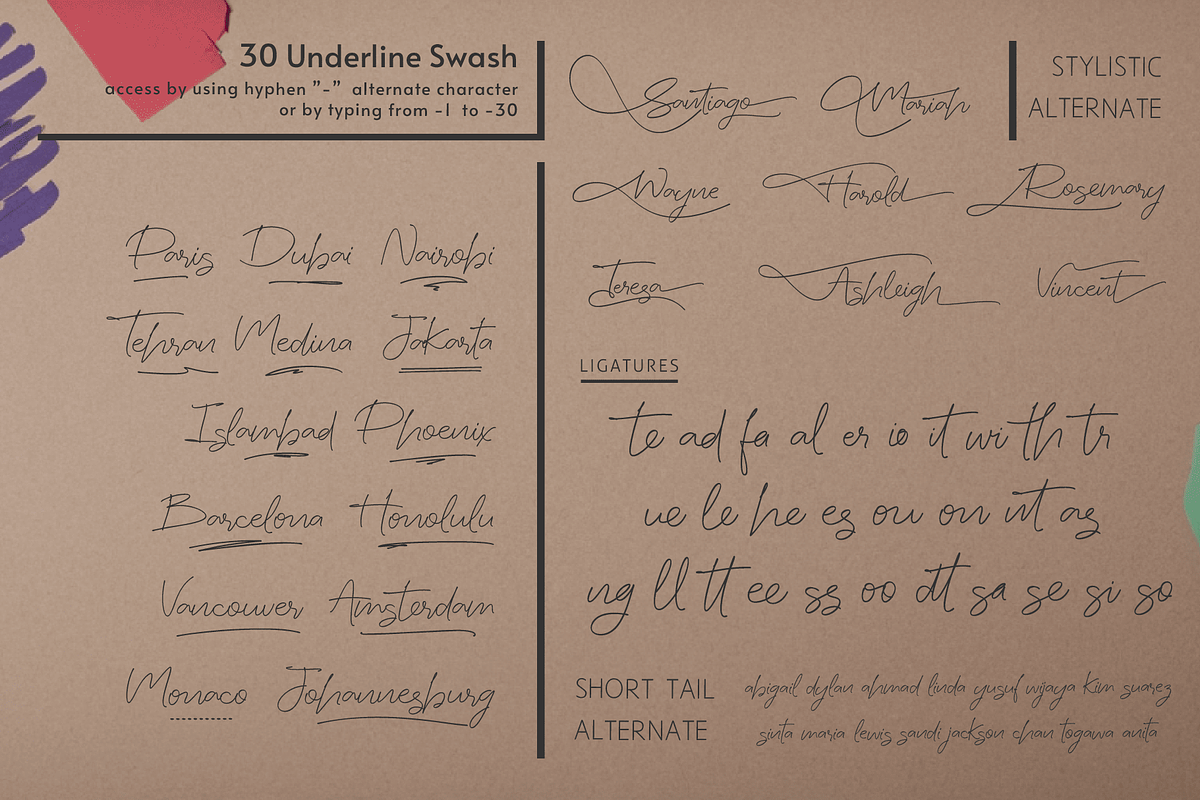 30 Underline Swash
access by using hyphen ”-” alternate character
or by typing from -1 to -30
Paris Dubai Nairobi
Tehran Medina Jakarta
Islambad Phoenix
Barcelona Honolulu
Vancouver Amsterdam
Monaco Johannesburg
Santiago Mariah
STYLISTIC
ALTERNATE
Wayne Harold Rosemary
Tereza Ashleigh Vincent
LIGATURES
te ad fa al er io it wi th tr
ue le he es ou on nt as
ng ll tt ee ss oo dt sa se si so
SHORT TAIL
ALTERNATE
abigail dylan ahmad linda yusuf wijaya kim suarez
sinta maria lewis sandi jackson chan togawa anita